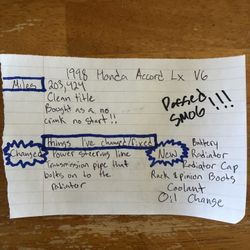 1998 Honda Accord Lx V6
Miles 203,424
Clean title
Bought as a no
crank no start!!
Passed
SMOG!!!
things I've changed/fixed
Changed
Power steering line
Transmission pipe that
bolts on to the
radiator
New
Battery
Radiator
Radiator Cap
Rack & pinion Boots
Coolant
Oil Change